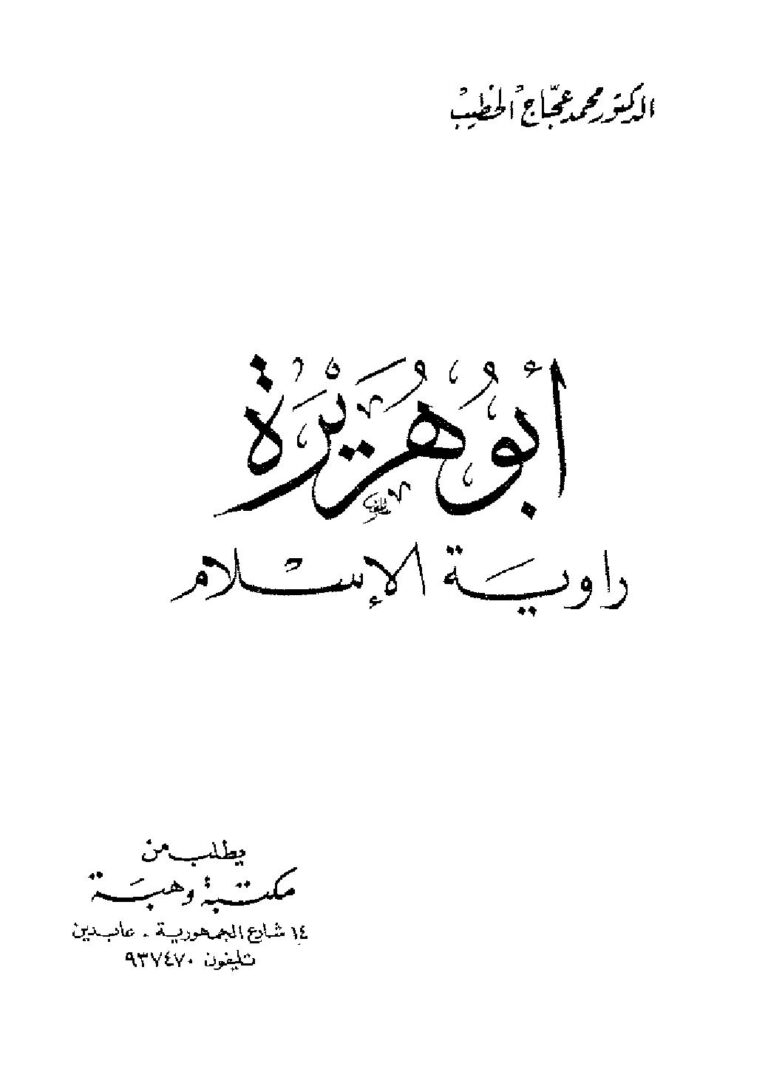 الدكتور محمد عجّاج الخطيبْ
أبو هُرَيْرَة
راويَة الإسْلام
يطلب من
مكتبة وهبَة
١٤ شارع الجمهورية . عابدين
تليفون ٩٣٧٤٧٠